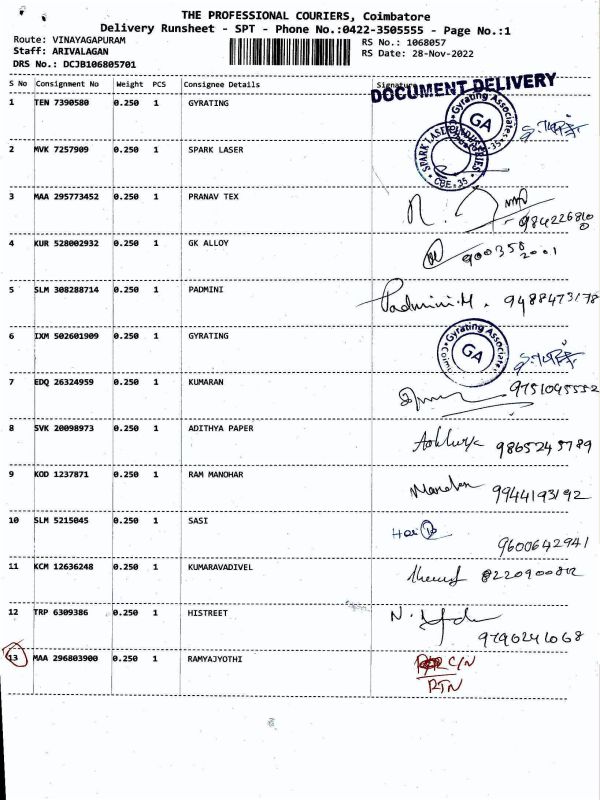 THE PROFESSIONAL COURIERS, Coimbatore
Delivery Runsheet - SPT - Phone No.:0422-3505555 - Page No.:1
Route: VINAYAGAPURAM
RS No.: 1068057
Staff: ARIVALAGAN
RS Date: 28-Nov-2022
DRS No.: DCJB106805701
S No Consignment No Weight PCS Consignee Details Signature
DOCUMENT DELIVERY
1 TEN 7390580 0.250 1 GYRATING
Gyrating Associates GA
2 MVK 7257909 0.250 1 SPARK LASER
SPARK LASER CBE-35
3 MAA 295773452 0.250 1 PRANAV TEX
4 KUR 528002932 0.250 1 GK ALLOY
5 SLM 308288714 0.250 1 PADMINI Padmini.M. 9488473178
6 IXM 502601909 0.250 1 GYRATING
Gyrating Associates GA
7 EDQ 26324959 0.250 1 KUMARAN 9751045552
8 SVK 20098973 0.250 1 ADITHYA PAPER 9865245789
9 KOD 1237871 0.250 1 RAM MANOHAR 9944193192
10 SLM 5215045 0.250 1 SASI Hari 9600642941
11 KCM 12636248 0.250 1 KUMARAVADIVEL
12 TRP 6309386 0.250 1 HISTREET
9790241068
13 MAA 296803900 0.250 1 RAMYAJYOTHI C/N
RTN